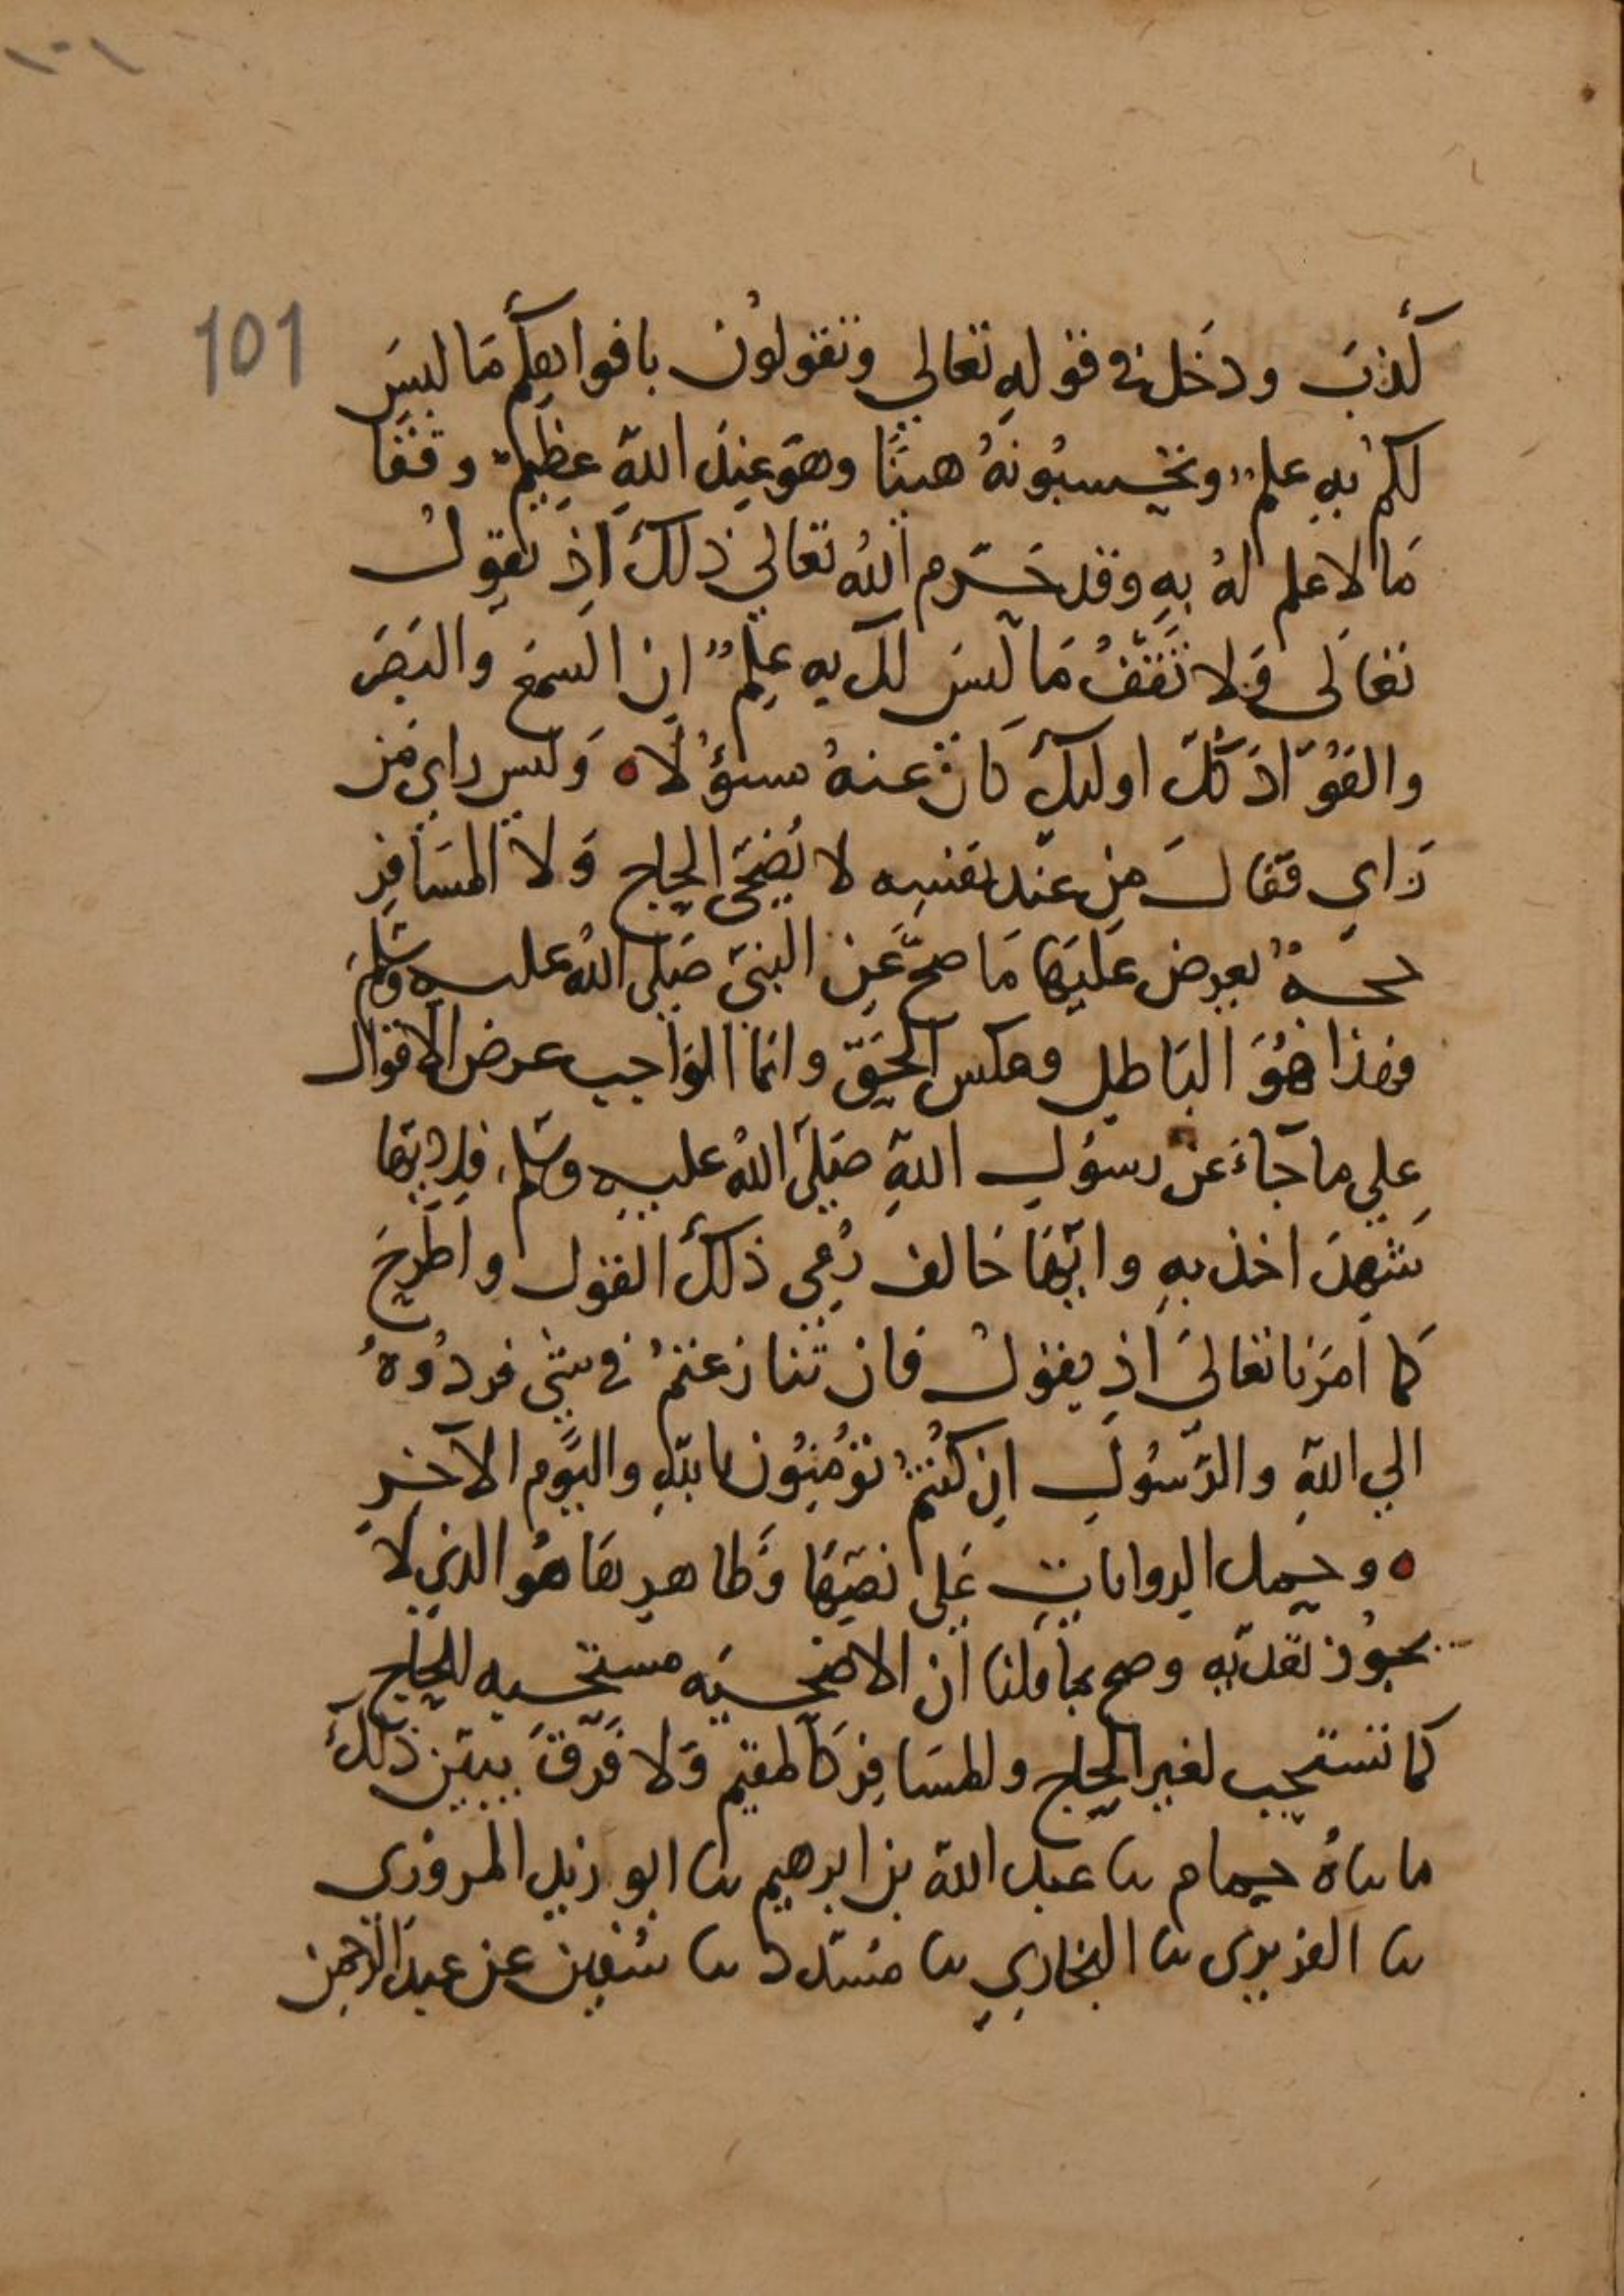 ١٠١
101
كذبَ ودَخَل في قولهِ تعالي وتقولوُن بافواهكُم مَا ليسَ
لكم بهِ علمٌ وتحسبُونهُ هينًا وهوَ عندَ اللهِ عظيمٌ وقَفَا
مَا لا علم لهُ بهِ وقد حَرّم اللهُ تعالي ذلكَ اذِ يقولُ
تعَالى وَلا تَقفُ مَا ليسَ لك به علمٌ ان السمعَ والبَصَر
والفؤَادَ كُلّ اوليكَ كانَ عنهُ مسؤُلاه وَليس راي مَن
رَاي فقالَ من عند نفسِه لا يُضَحّي الحاج وَلا المسَافر
حجةٌ يعرض عَليهَا مَا صحّ عَن النبيّ صَلي اللهُ عليه وسَلمَ
فهذا هُوَ البَاطل وعكس الحَقّ وانما الوَاجب عرض الاقوال
علي ما جَاءَ عن رسوُل اللهِ صَلَي اللهُ عليه وسَلم، فلايّها
شهِدَ اخذ بهِ وايّهَا خَالف رُمي ذلكَ القول واطُّرحَ
كما امَرَنا تعَالىَ اذِ يقولُ فان تنازعتمُ في شي فردُوهُ
الي اللهِ والرّسُول ان كنُتمُ تؤمنوُن باللهِ واليَوم الآخرِ
ه وحمل الروايات عَلي نصّهَا وَظاهرهَا هُو الذي لا
يجوُز تعدّيهِ وصح بما قلنا انَ الاضحيَه مستحبه للحاج
كما تستحب لغير الحاج وللمسَافِر كَالمقيم وَلا فَرّقَ بيَن ذلكَ
ما ناهُ حمام نا عبد الله بن ابرهيم نا ابو زيد المروزي
نا الفربري نا البخاري نا مسَدد نا سُفين عن عبدَ الرحمن